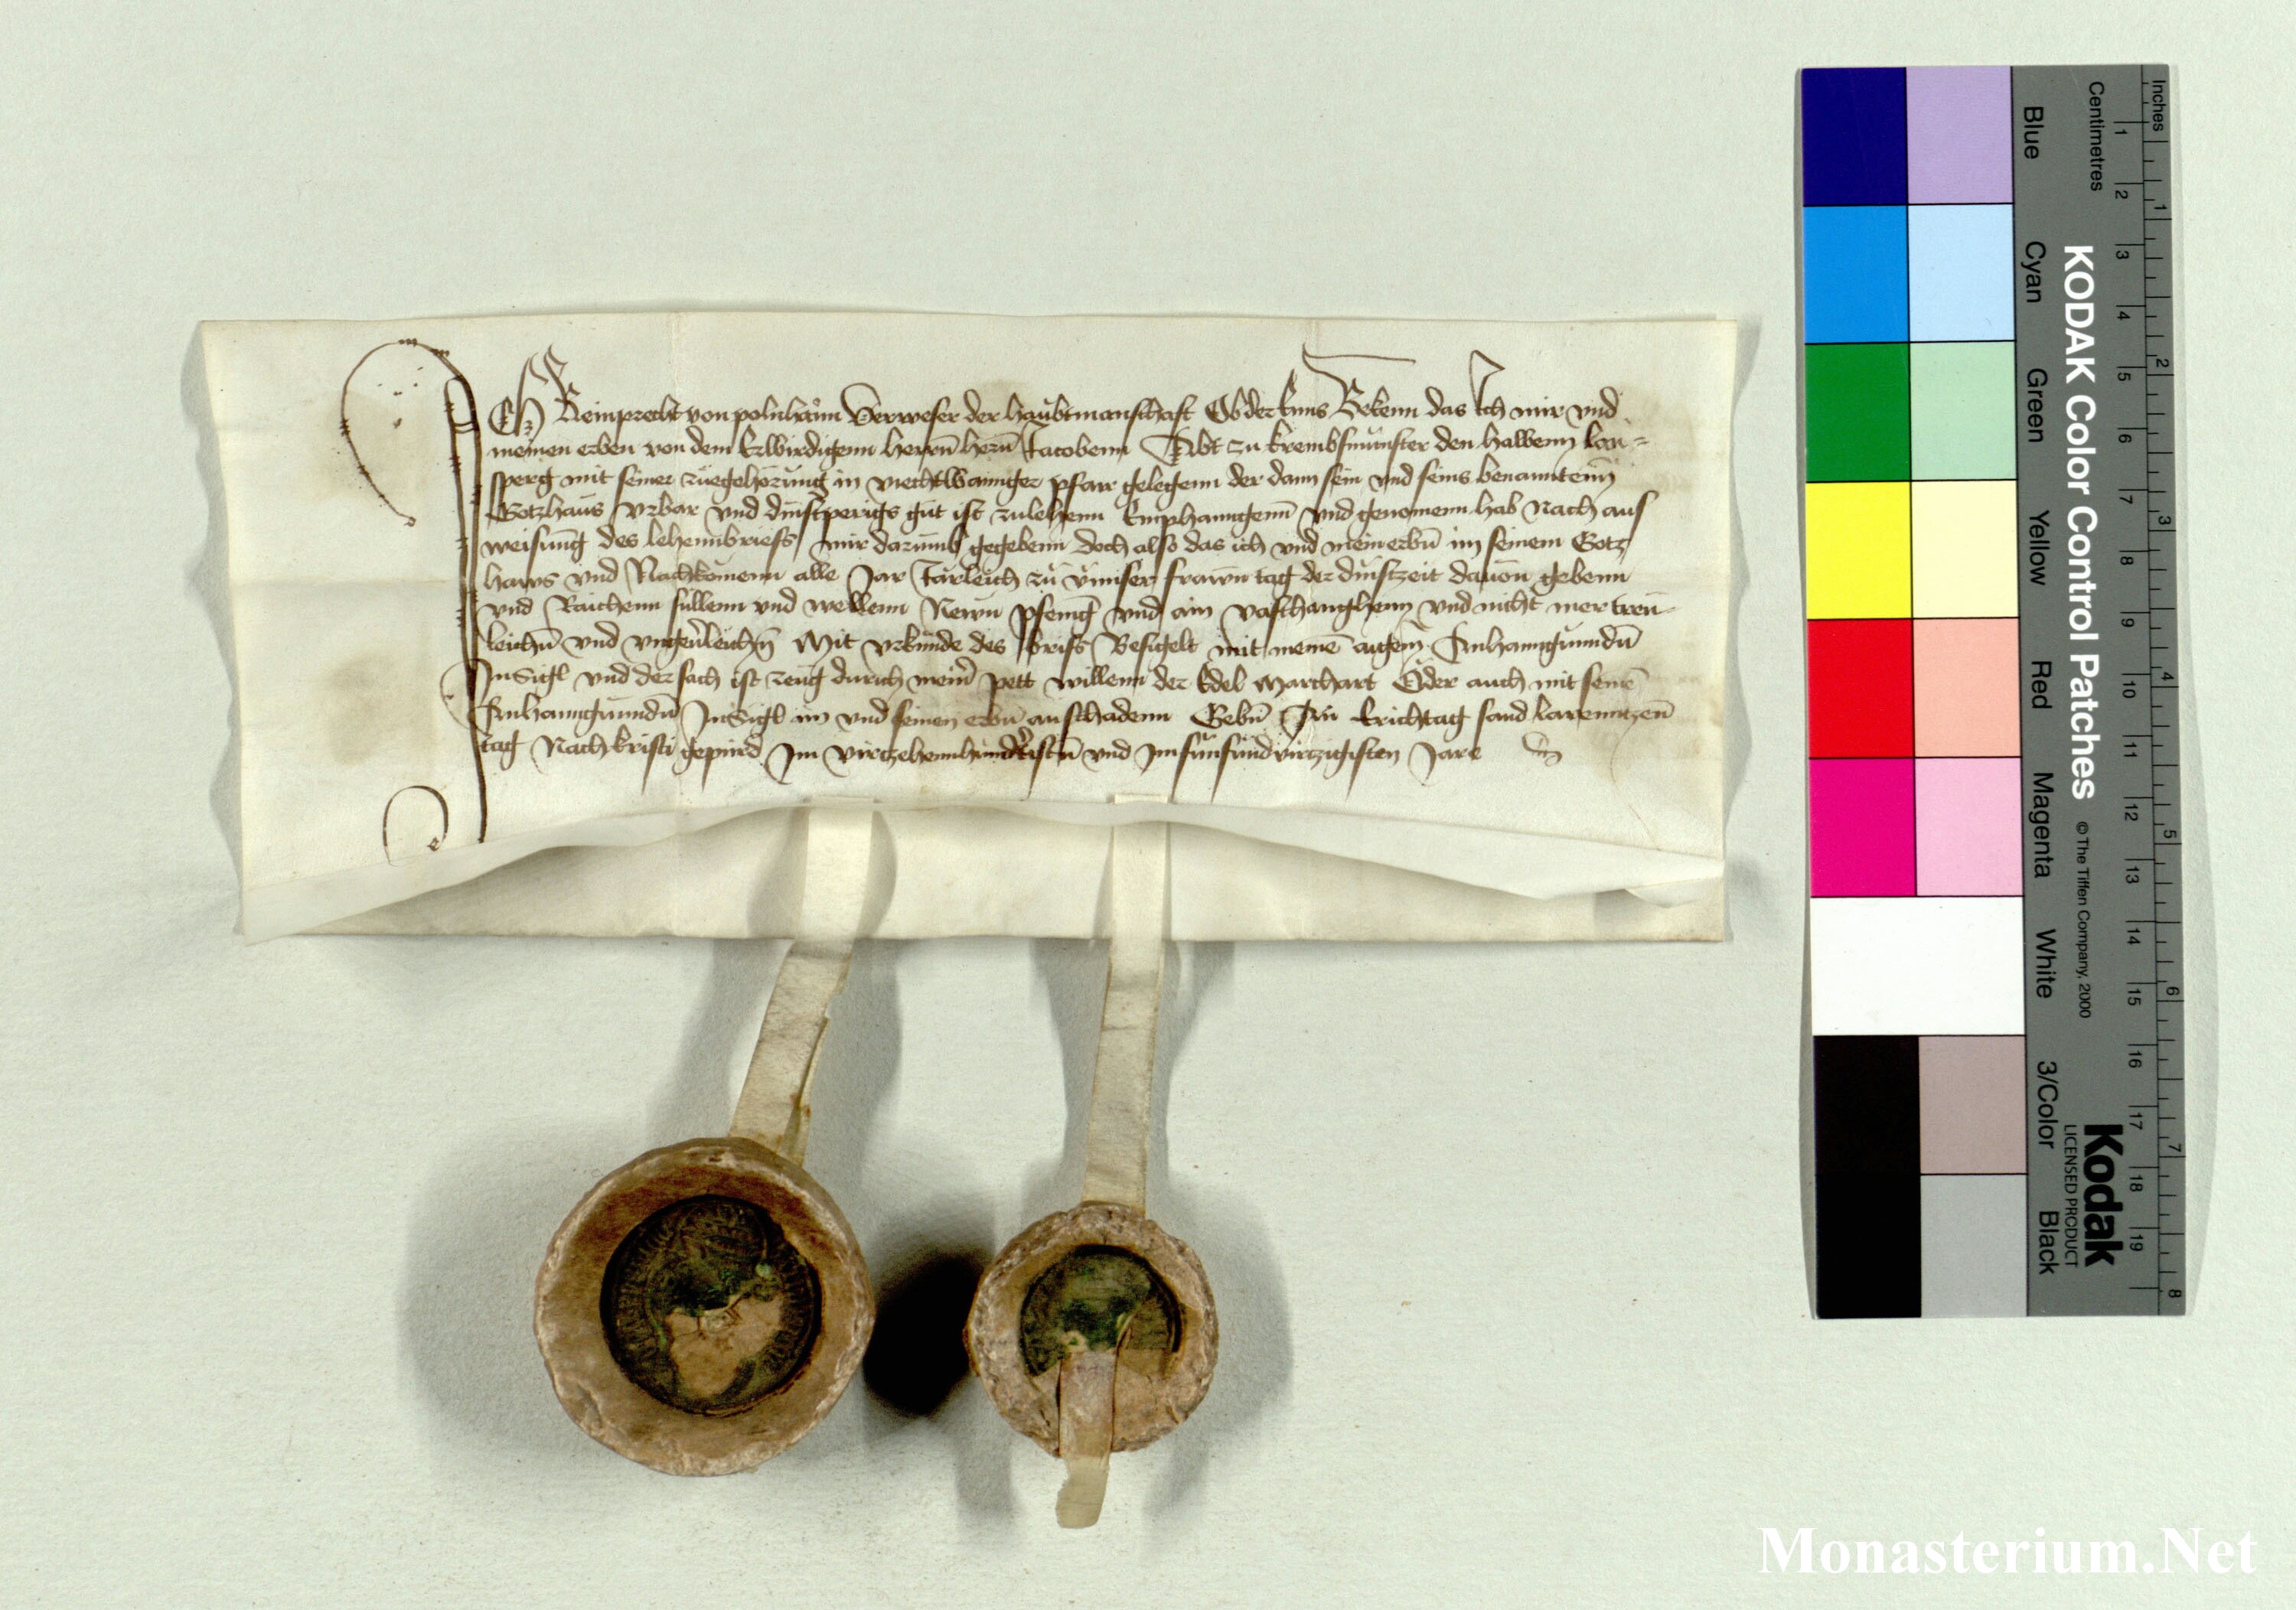 Ich Reinprecht von polnhaim Verweser der haubtmanschaft Ob der Enns Bekenn das Ich mir vnd
meinen erben von dem Erwirdigenn herrn̄ hern̄ Jacobenn Abt zu krembsmunster den halbenn lon=
sperg mit seiner zuegehorung in viechtwannger pfarr gelegenn der dann sein vnd seins benanntenn
Gotzhaus vrbar vnd dinstperigs gut ist zulehenn Emphanngenn vnd genomenn hab Nach aus
weisung des lehennbriefs mir darumb gegebenn doch also das ich vnd mein erbn̄ im seinem Gotz
haws vnd Nachkomenn alle Jar Jarleich zu vnnser frawn̄ tag der dinstzeit dauon gebenn
vnd Raichenn sullenn vnd wellenn Newn pfennig vnd ain vaschanghenn vnd nicht mer trew=
leichn̄ vnd vngeuerleichn̄ Mit vrkunde des briefs Besigelt mit meinē aigem Anhanngunndn̄
Insigl vnd der sach ist zeug durich meinr pett willenn der Edel Marchart Öder auch mit seinē
Anhanngunndn̄ Insigl im vnd seinen erbn̄ an schadenn Gebn̄ An Erichtag sand larenntzenn̄
tag Nach kristi gepurd Im virczehennhundertistn̄ vnd Im funfundvirtzigisten Jare
KODAK Color Control Patches © The Tiffen Company, 2000 Kodak
LICENSED PRODUCT
Blue Cyan Green Yellow Red Magenta White 3/Color Black
Centimetres 1 2 3 4 5 6 7 8 9 10 11 12 13 14 15 16 17 18 19
Inches 1 2 3 4 5 6 7 8
Monasterium.Net